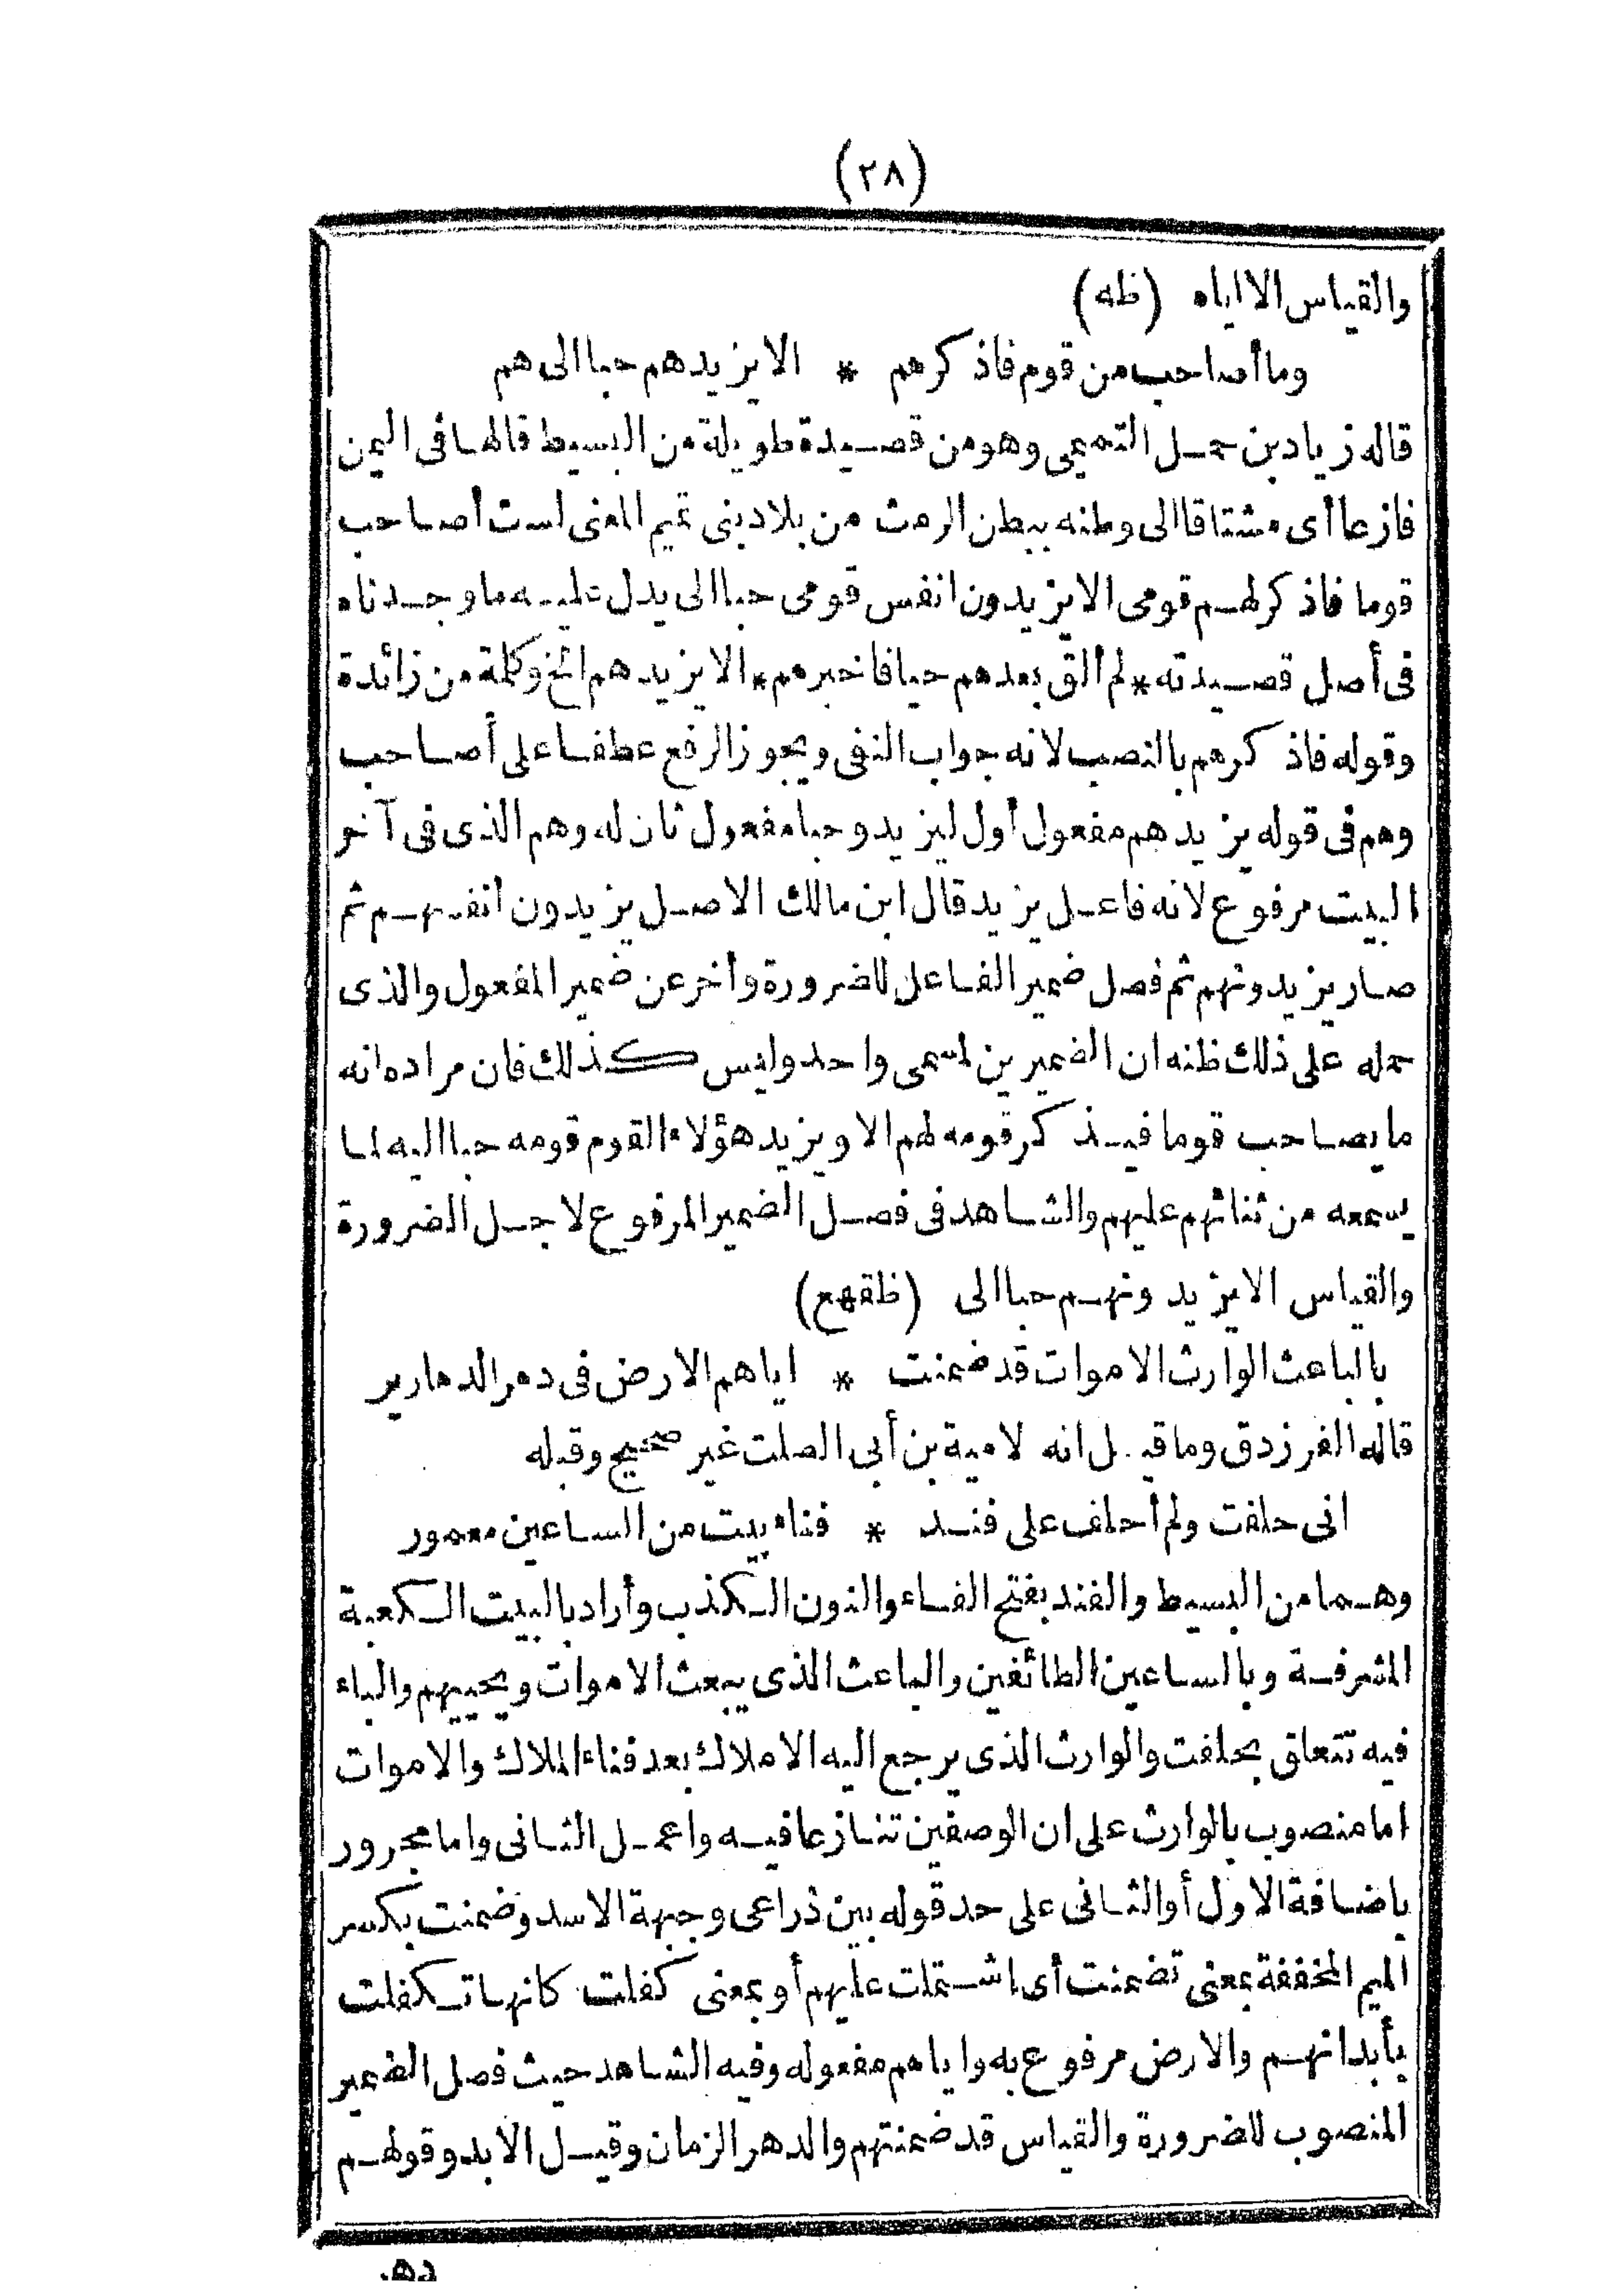 (٢٨)
والقياس الا اياه (ظه)
وما أصاحب من قوم فاذكرهم * الا يزيدهم حبا الى هم
قاله زياد بن حمل التميمى وهو من قصيدة طويلة من البسيط قالها فى اليمن
فازعا أى مشتاقا الى وطنه ببطن الرمث من بلاد بنى تميم المعنى لست أصاحب
قوما فاذكر لهم قومى الا يزيدون انفس قومى حبا الى يدل عليه ما وجدناه
فى أصل قصيدته * لم ألق بعدهم حيا فاخبرهم * الا يزيدهم الخ وكلمة من زائدة
وقوله فاذكرهم بالنصب لانه جواب النفى ويجوز الرفع عطفا على أصاحب
وهم فى قوله يزيدهم مفعول أول ليزيد وحبا مفعول ثان له وهم الذى فى آخر
البيت مرفوع لانه فاعل يزيد قال ابن مالك الاصل يزيدون انفسهم ثم
صار يزيدونهم ثم فصل ضمير الفاعل للضرورة وأخر عن ضمير المفعول والذى
حمله على ذلك ظنه ان الضميرين لمسمى واحد وليس كذلك فان مراده انه
ما يصاحب قوما فيذكر قومه لهم الا ويزيد هؤلاء القوم قومه حبا اليه لما
يسمعه من ثنائهم عليهم والشاهد فى فصل الضمير المرفوع لاجل الضرورة
والقياس الا يزيدونهم حبا الى (ظقهع)
بالباعث الوارث الاموات قد ضمنت * اياهم الارض فى دهر الدهارير
قاله الفرزدق وما قيل انه لامية بن أبى الصلت غير صحيح وقبله
انى حلفت ولم أحلف على فند * فناء بيت من الساعين معمور
وهما من البسيط والفند بفتح الفاء والنون الكذب وأراد بالبيت الكعبة
المشرفة وبالساعين الطائفين والباعث الذى يبعث الاموات ويحييهم والباء
فيه تتعلق بحلفت والوارث الذى يرجع اليه الاملاك بعد فناء الملاك والاموات
اما منصوب بالوارث على ان الوصفين تنازعا فيه واعمل الثانى واما مجرور
باضافة الاول أو الثانى على حد قوله بين ذراعى وجبهة الاسد وضمنت بكسر
الميم المخففة بمعنى تضمنت أى اشتملت عليهم أو بمعنى كفلت كانها تكفلت
بأبدانهم والارض مرفوع به واياهم مفعوله وفيه الشاهد حيث فصل الضمير
المنصوب للضرورة والقياس قد ضمنتهم والدهر الزمان وقيل الابد وقولهم
دهر